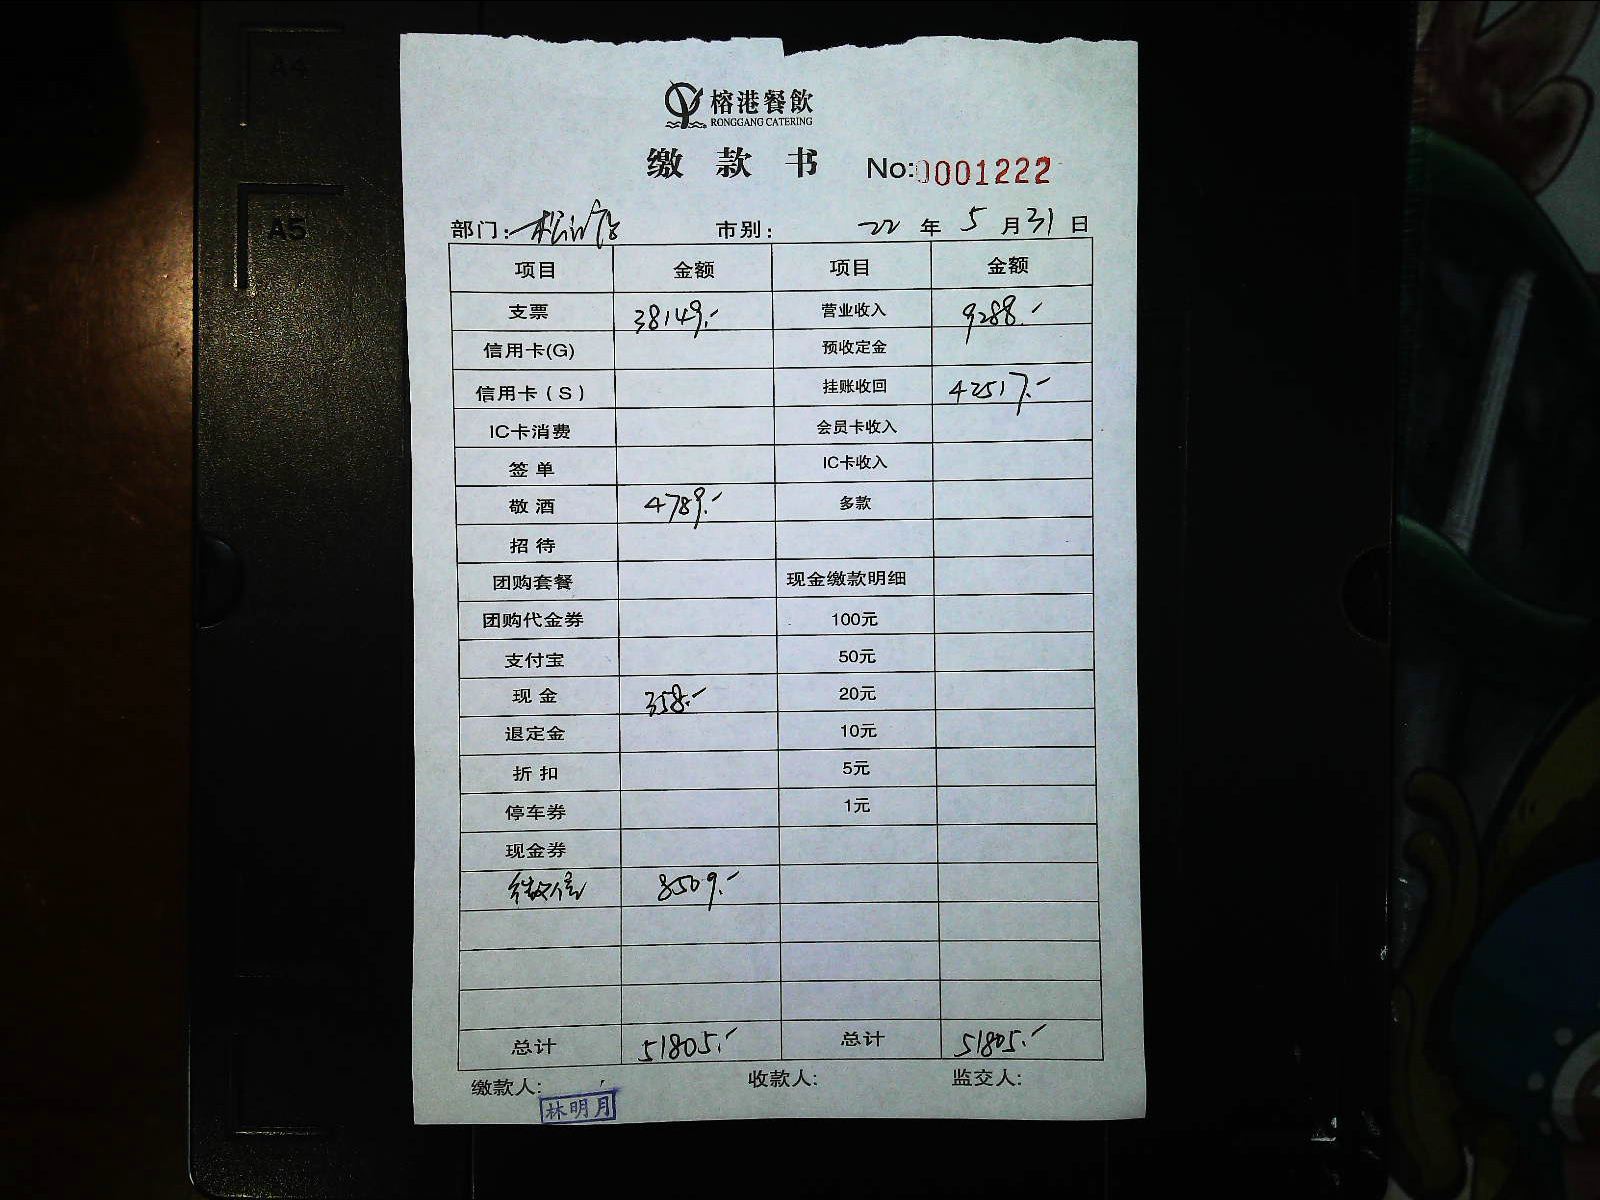 A4
A5
榕港餐飲
RONGGANG CATERING
缴款书 No:0001222
部门: 市别: 22 年 5 月 31 日
项目 金额 项目 金额
支票 38149.- 营业收入 9288.-
信用卡(G) 预收定金
信用卡(S) 挂账收回 42517.-
IC卡消费 会员卡收入
签单 IC卡收入
敬酒 4789.- 多款
招待
团购套餐 现金缴款明细
团购代金券 100元
支付宝 50元
现金 358.- 20元
退定金 10元
折扣 5元
停车券 1元
现金券
微信 8509.-
总计 51805.- 总计 51805.-
缴款人: 收款人: 监交人:
林明月